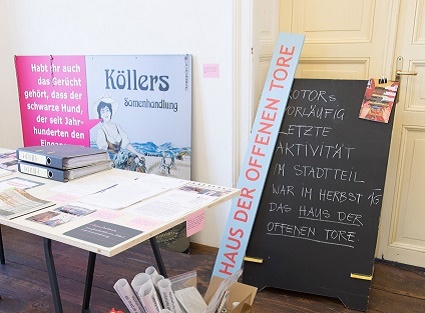 Habt ihr auch
das Gerücht
gehört, dass der
schwarze Hund,
der seit Jahr-
hunderten den
Köllers
Samenhandlung
HAUS DER OFFENEN TORE
OTORs
ORLÄUFIG
LETZTE
AKTIVITÄT
M STADTTEIL
WAR IM HERBST '15
DAS HAUS DER
OFFENEN TORE.